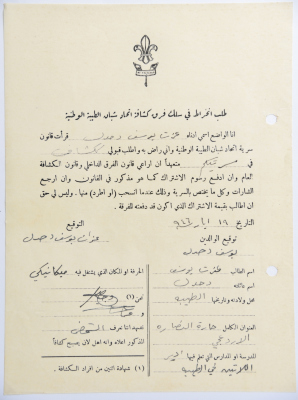 طلب انخراط في سلك فرق كشافة اتحاد شبان الطيبة الوطنية
انا الواضع اسمي ادناه عزت يوسف دحدل قرأت قانون
سرية اتحاد شبان الطيبة الوطنية واني راض به واطلب قبولي
في متعهداً ان اراعي قانون الفرق الداخلي وقانون الكشافة
العام وان ادفع رسوم الاشتراك كما هو مذكور في القانون وان ارجع
الشارات وكل ما يختص بالسرية وذلك عندما انسحب (او اطرد) منها. وليس لي حق
ان اطالب بقيمة الاشتراك الذي اكون قد دفعته للفرقة.
التاريخ ١٩ ايار
التوقيع
توقيع الوالدين
يوسف دحدل
اسم الطالب عزت يوسف
اسم عائلته دحدل
محل ولادته وتاريخها الطيبه
العنوان الكامل حارة النصاره
المدرسة او المدارس التي تعلم فيها دير
اللاتين في الطيبه
الحرفة او المكان الذي يشتغل فيه ميكانيكي
نحن (١)
نشهد اننا نعرف الشخص
المذكور اعلاه وانه اهل لان يصبح كشافاً
(١) شهادة اثنين من افراد الكشافة.